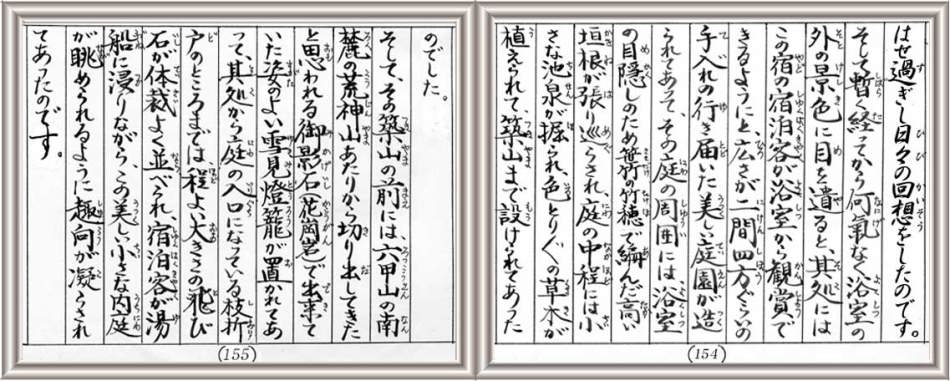 はせ過ぎし日々の回想をしたのです。
そして暫く経ってから何氣なく浴室の
外の景色に目を遣ると、其処には
この宿の宿泊客が浴室から観賞で
きるようにと、広さが二間四方ぐらいの
手入れの行き届いた美しい庭園が造
られてあって、その庭の周囲には浴室
の目隠しのため笹竹の竹穂で編んだ高い
垣根が張り巡らされ、庭の中程には小
さな池泉が掘られ、色とりどりの草木が
植えられて、築山まで設けられてあった
(154)
のでした。
そして、その築山の前には、六甲山の南
麓の荒神山あたりから切り出してきた
と思われる御影石(花崗岩)で出来て
いた姿のよい雪見燈籠が置かれてあ
って、其処から庭の入口になっている枝折
戸のところまでは、程よい大きさの飛び
石が体裁よく並べられ、宿泊客が湯
船に浸りながら、この美しい小さな内庭
が眺められるように趣向が凝らされ
てあったのです。
(155)